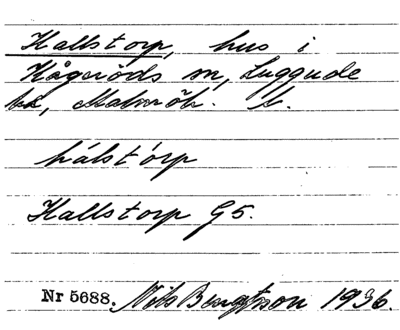 Hallstorp, hus i
Kågeröds sn, Luggude
hd, Malmöh. l.
hálstórp
Hallstorp G5.
Nr 5688. Nils Bengtsson 1936.